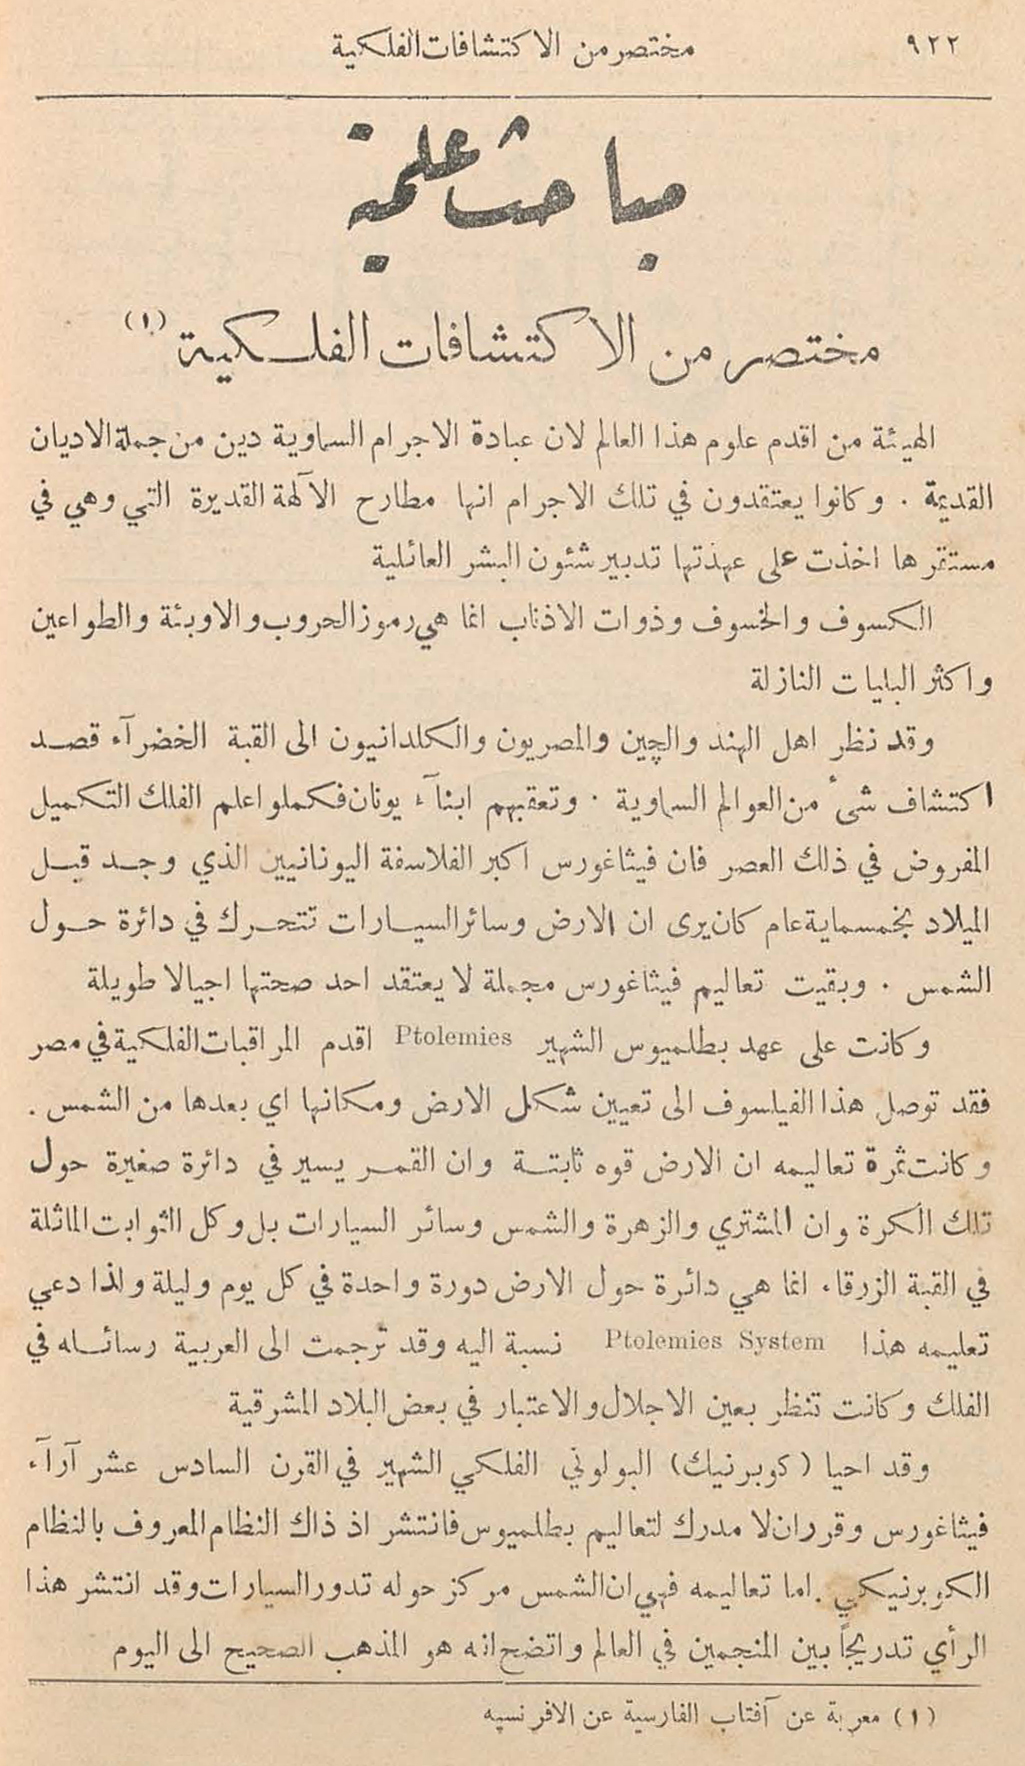 ٩٢٢ مختصر من الاكتشافات الفلكية
مباحث علمية
مختصر من الاكتشافات الفلكية (١)
الهيئة من اقدم علوم هذا العالم لان عبادة الاجرام السماوية دين من جملة الاديان
القديمة . وكانوا يعتقدون في تلك الاجرام انها مطارح الآلهة القديرة التي وهي في
مستقرها اخذت على عهدتها تدبير شئون البشر العائلية
الكسوف والخسوف وذوات الاذناب انما هي رموز الحروب والاوبئة والطواعين
واكثر البليات النازلة
وقد نظر اهل الهند والچين والمصريون والكلدانيون الى القبة الخضرآء قصد
اكتشاف شئ من العوالم السماوية . وتعقبهم ابنآء يونان فكملوا علم الفلك التكميل
المفروض في ذلك العصر فان فيثاغورس اكبر الفلاسفة اليونانيين الذي وجد قبل
الميلاد بخمسماية عام كان يرى ان الارض وسائر السيارات تتحرك في دائرة حول
الشمس . وبقيت تعاليم فيثاغورس مجملة لا يعتقد احد صحتها اجيالا طويلة
وكانت على عهد بطلميوس الشهير Ptolemies اقدم المراقبات الفلكية في مصر
فقد توصل هذا الفيلسوف الى تعيين شكل الارض ومكانها اي بعدها من الشمس .
وكانت ثمرة تعاليمه ان الارض قوه ثابتة وان القمر يسير في دائرة صغيرة حول
تلك الكرة وان المشتري والزهرة والشمس وسائر السيارات بل وكل الثوابت الماثلة
في القبة الزرقاء انما هي دائرة حول الارض دورة واحدة في كل يوم وليلة ولذا دعي
تعليمه هذا Ptolemies System نسبة اليه وقد ترجمت الى العربية رسائله في
الفلك وكانت تنظر بعين الاجلال والاعتبار في بعض البلاد المشرقية
وقد احيا (كوبرنيك) البولوني الفلكي الشهير في القرن السادس عشر آرآء
فيثاغورس وقرر ان لا مدرك لتعاليم بطلميوس فانتشر اذ ذاك النظام المعروف بالنظام
الكوبرنيكي . اما تعاليمه فهي ان الشمس مركز حوله تدور السيارات وقد انتشر هذا
الرأي تدريجاً بين المنجمين في العالم واتضح انه هو المذهب الصحيح الى اليوم
(١) معربة عن آفتاب الفارسية عن الافرنسيه